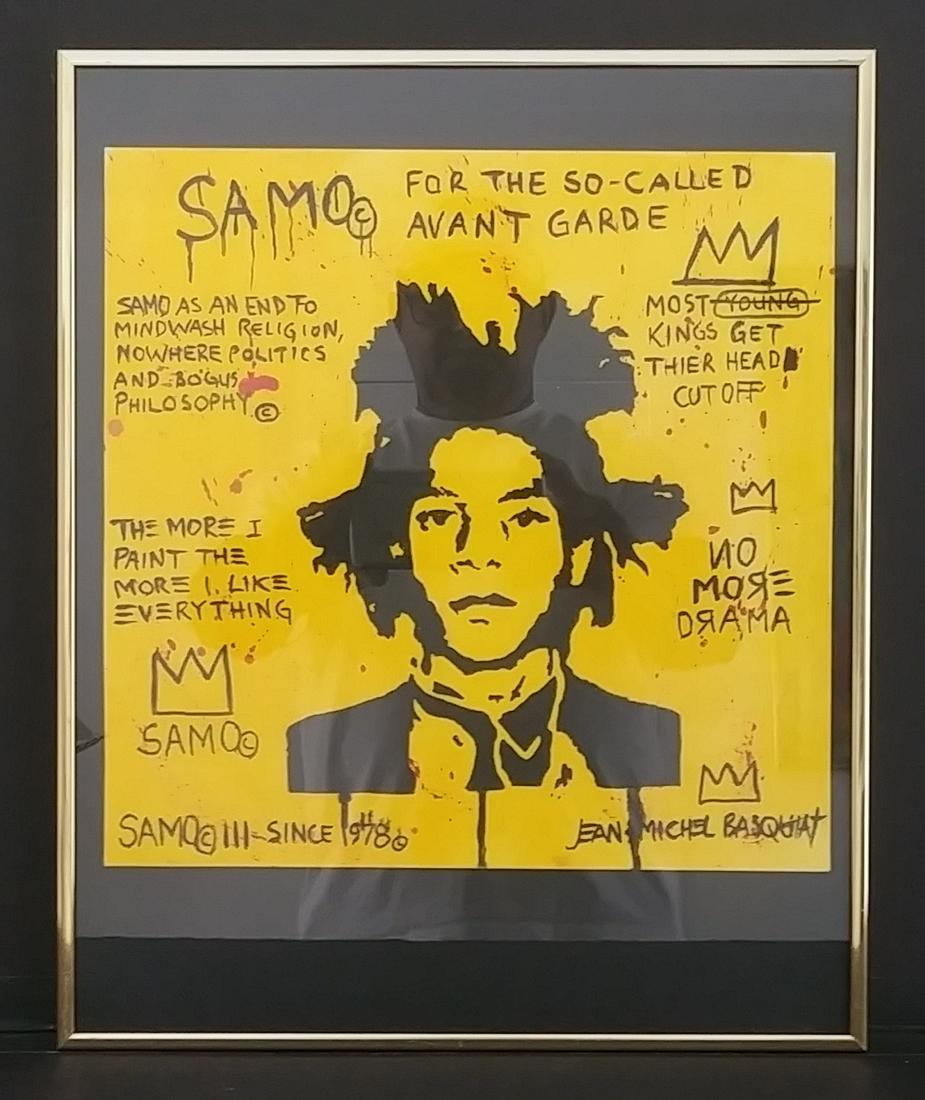 SAMO©
FOR THE SO-CALLED
AVANT GARDE
SAMO AS AN END TO
MINDWASH RELIGION,
NOWHERE POLITICS
AND BOGUS
PHILOSOPHY ©
MOST YOUNG
KINGS GET
THIER HEAD
CUT OFF
THE MORE I
PAINT THE
MORE I LIKE
EVERYTHING
NO
MORE
DRAMA
SAMO©
SAMO© III-SINCE 1978©
JEAN-MICHEL BASQUIAT